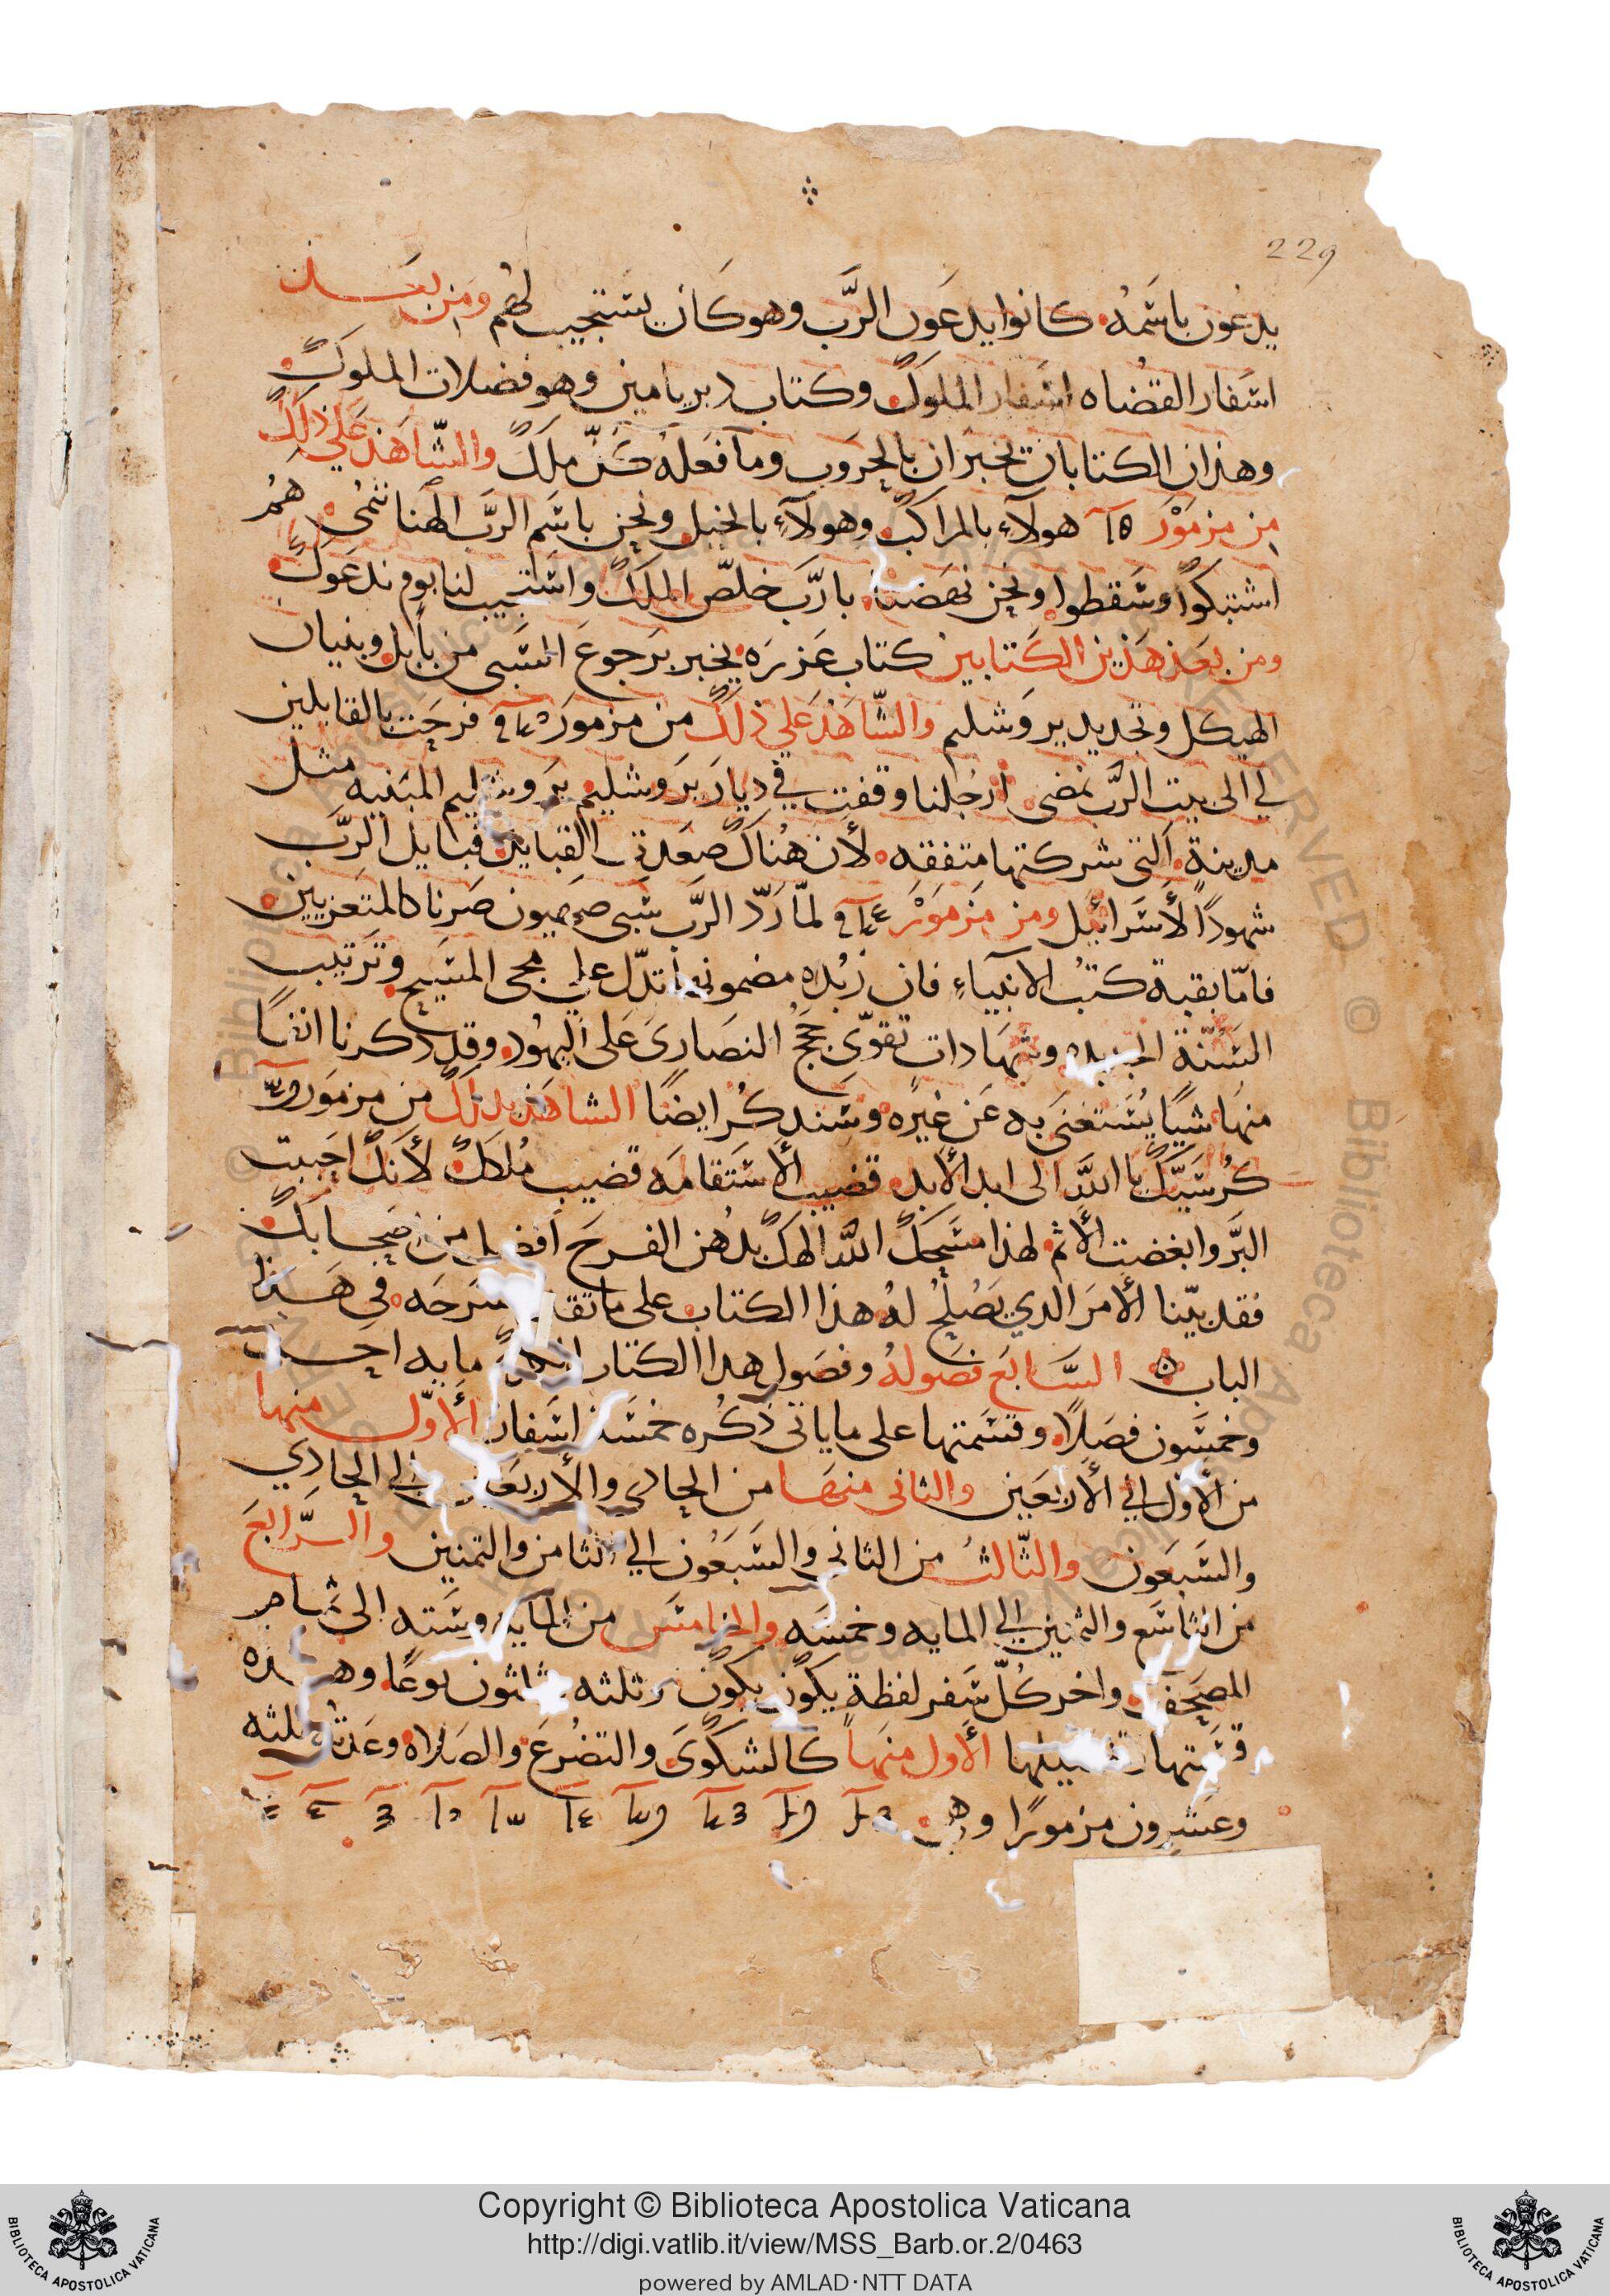 229
يدعُون باسَمهُ كانوا يدعَون الرَّب وهو كَان يستجيب لهُم ومن بعَد
اسَفار القضُاه اسَفار الملوكَ وكتاب دبريامين وهو فضلات الملوكَ
وهذان الكتابان تخبران بالحرَوب وما فعَلهُ كلّ ملكَ والشّاهَد عَلي ذلِكَ
من مزموَر هولآءِ بالمراكَب وهولآءِ بالخيل ونحن باسَم الرَّب الهنا ننمُى همُ
اشتبكوًا وسَقطوا ونحن نهضَنا يا ربَّ خلصّ الملكَ واسَتجيب لنا يوم ندعَوكَ
ومن بعَد هَذين الكَتابين كتاب عَزرَه يخبر برَجوعَ السَبى من بابل وبنيان
الهيكل وتجديد يروَشليم والشّاهَد عَلي ذلكَ من مزمورَ فرحَت بالقايلين
لي الى بيت الرَّب نمضى أرَجلنا وقفت في ديارَ يرَوشليم يرَوشليم المبَنيه مثل
مدينة التي شركتها متفقه لأن هُناكَ صعَدت القبايل قبايل الرَّب
شهودًا لأسَرائيل ومن مزموَرَ لمّا رَدّ الرَّب سَبى صهيون صَرنا كالمتعَزيين
فامّا بقية كتبُ الانبيآءِ فان زبُده مضمونها تدّل علي مجى المسَيح وتَرتيب
السَنّة الجديده وشهَادات تقوّي حججُ النصَارىَ عَلى اليهوُد وقد ذكرنا انفًا
منهَا شيًا يسُتَغنىَ به عَن غيره وسَنذكرُ ايضًا الشاهَد بذلكَ من مزموَر
كرُسَيّكَ يا اللَّه الى ابد الأبد قضيب الأسَتَقامَه قضيب مُلككَ لأنَكَ احَببت
البَرّ وابغضت الأثم لهذا مسَحكَ اللَّه الهكَ بدهُن الفرحَ أفضل من اصَحابكَ
فقد بيّنا الأمرَ الدي يصَلحُ لهُ هذا الكتاب على ما تقدم شرَحَه في هَـذا
الباب السَّابعَ فصَولهُ وفصَول هدا الكتاب مايه احَـ
وخمسَون فصَلاً وقسَمتها على ما ياتى ذكرُه خمسَة اسَفار الأوّل منها
من الأول الي الأربعَين والثانى منهَا من الحادى والأربعَين الي الحادي
والسَبعَون والثّالثُ من الثانى والسَبَعُون الي الثامن والثمنين والـرَّابعَ
من التاسَع والثمنين الي المايه وخمسَه والخامسَ من المايه وسَته الى تمـام
المصَحف واخر كلُّ سَفر لفظة يكوُن يكَون ثلثه وثلثون نوعًا وهـذه
قسَمتها وتفصيلها الأول منهَا كالشكوَىَ والتضرُعَ والصَلاه وعَدتهُ ثلثه
وعشرون مزمورًا وهى
Copyright © Biblioteca Apostolica Vaticana
http://digi.vatlib.it/view/MSS_Barb.or.2/0463
powered by AMLAD·NTT DATA
BIBLIOTECA APOSTOLICA VATICANA
BIBLIOTECA APOSTOLICA VATICANA